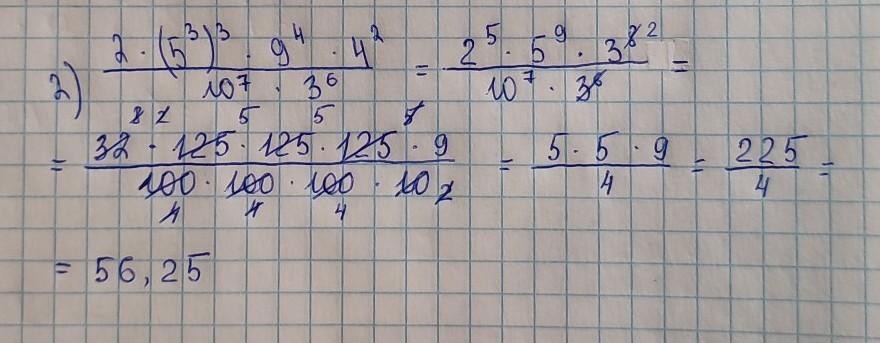 2) 2 · (5³)³ · 9⁴ · 4² / 10⁷ · 3⁶ = 2⁵ · 5⁹ · 3⁸ ² / 10⁷ · 3⁶ =
= 32 · 125 · 125 · 125 · 9 / 100 · 100 · 100 · 10 = 5 · 5 · 9 / 4 = 225 / 4 =
= 56,25